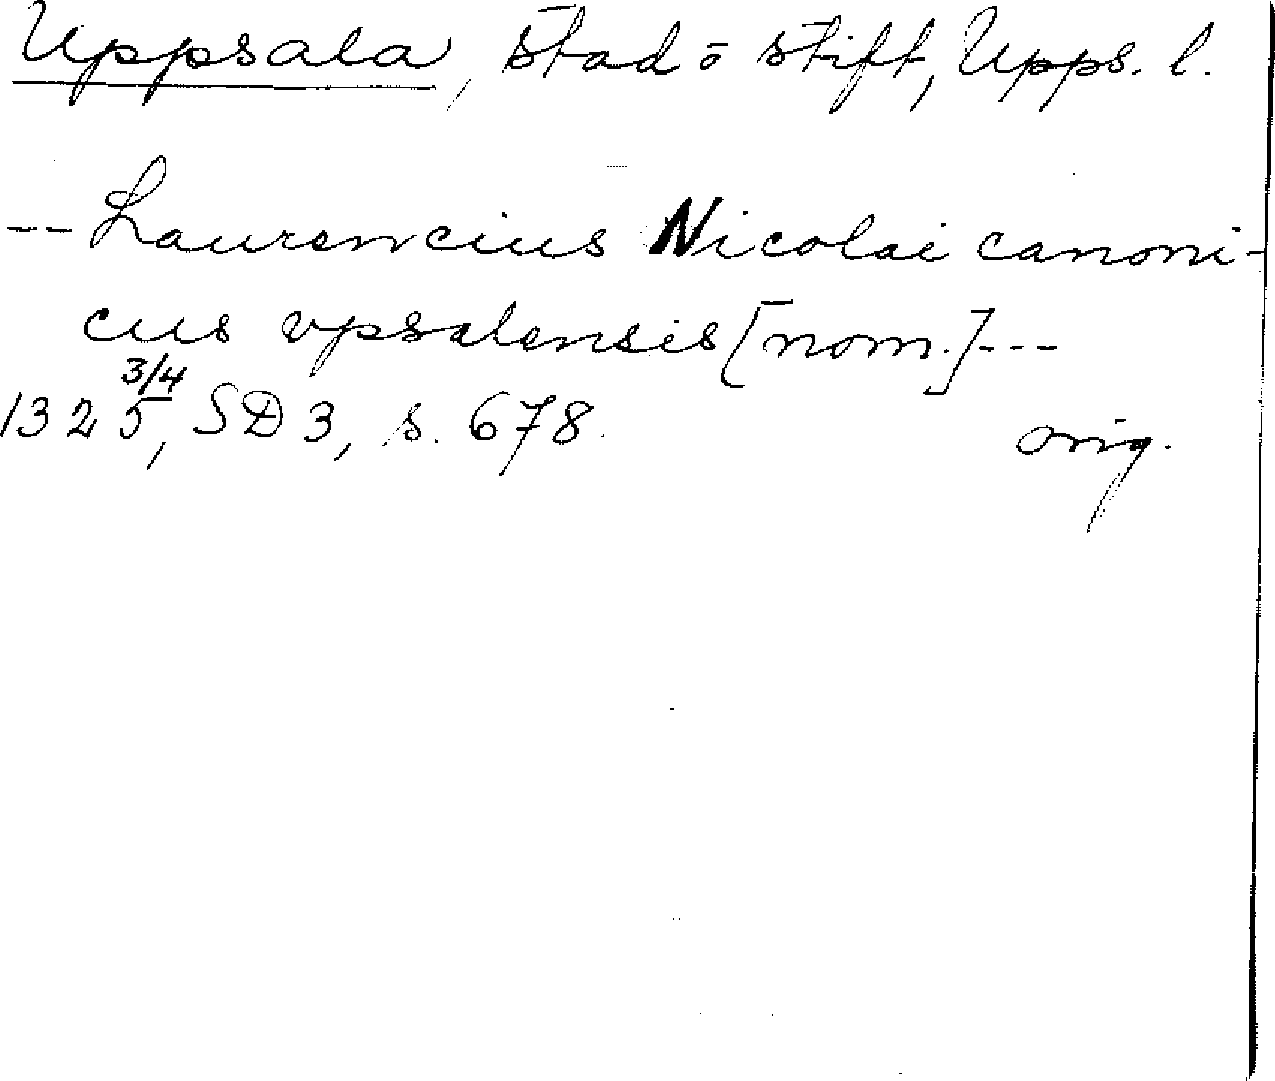 Uppsala, stad o stift, Upps. l.
-- Laurencius Nicolai canoni-
cus vpsalensis [nom.]---
3/4
1325, SD 3, s. 678.
orig.